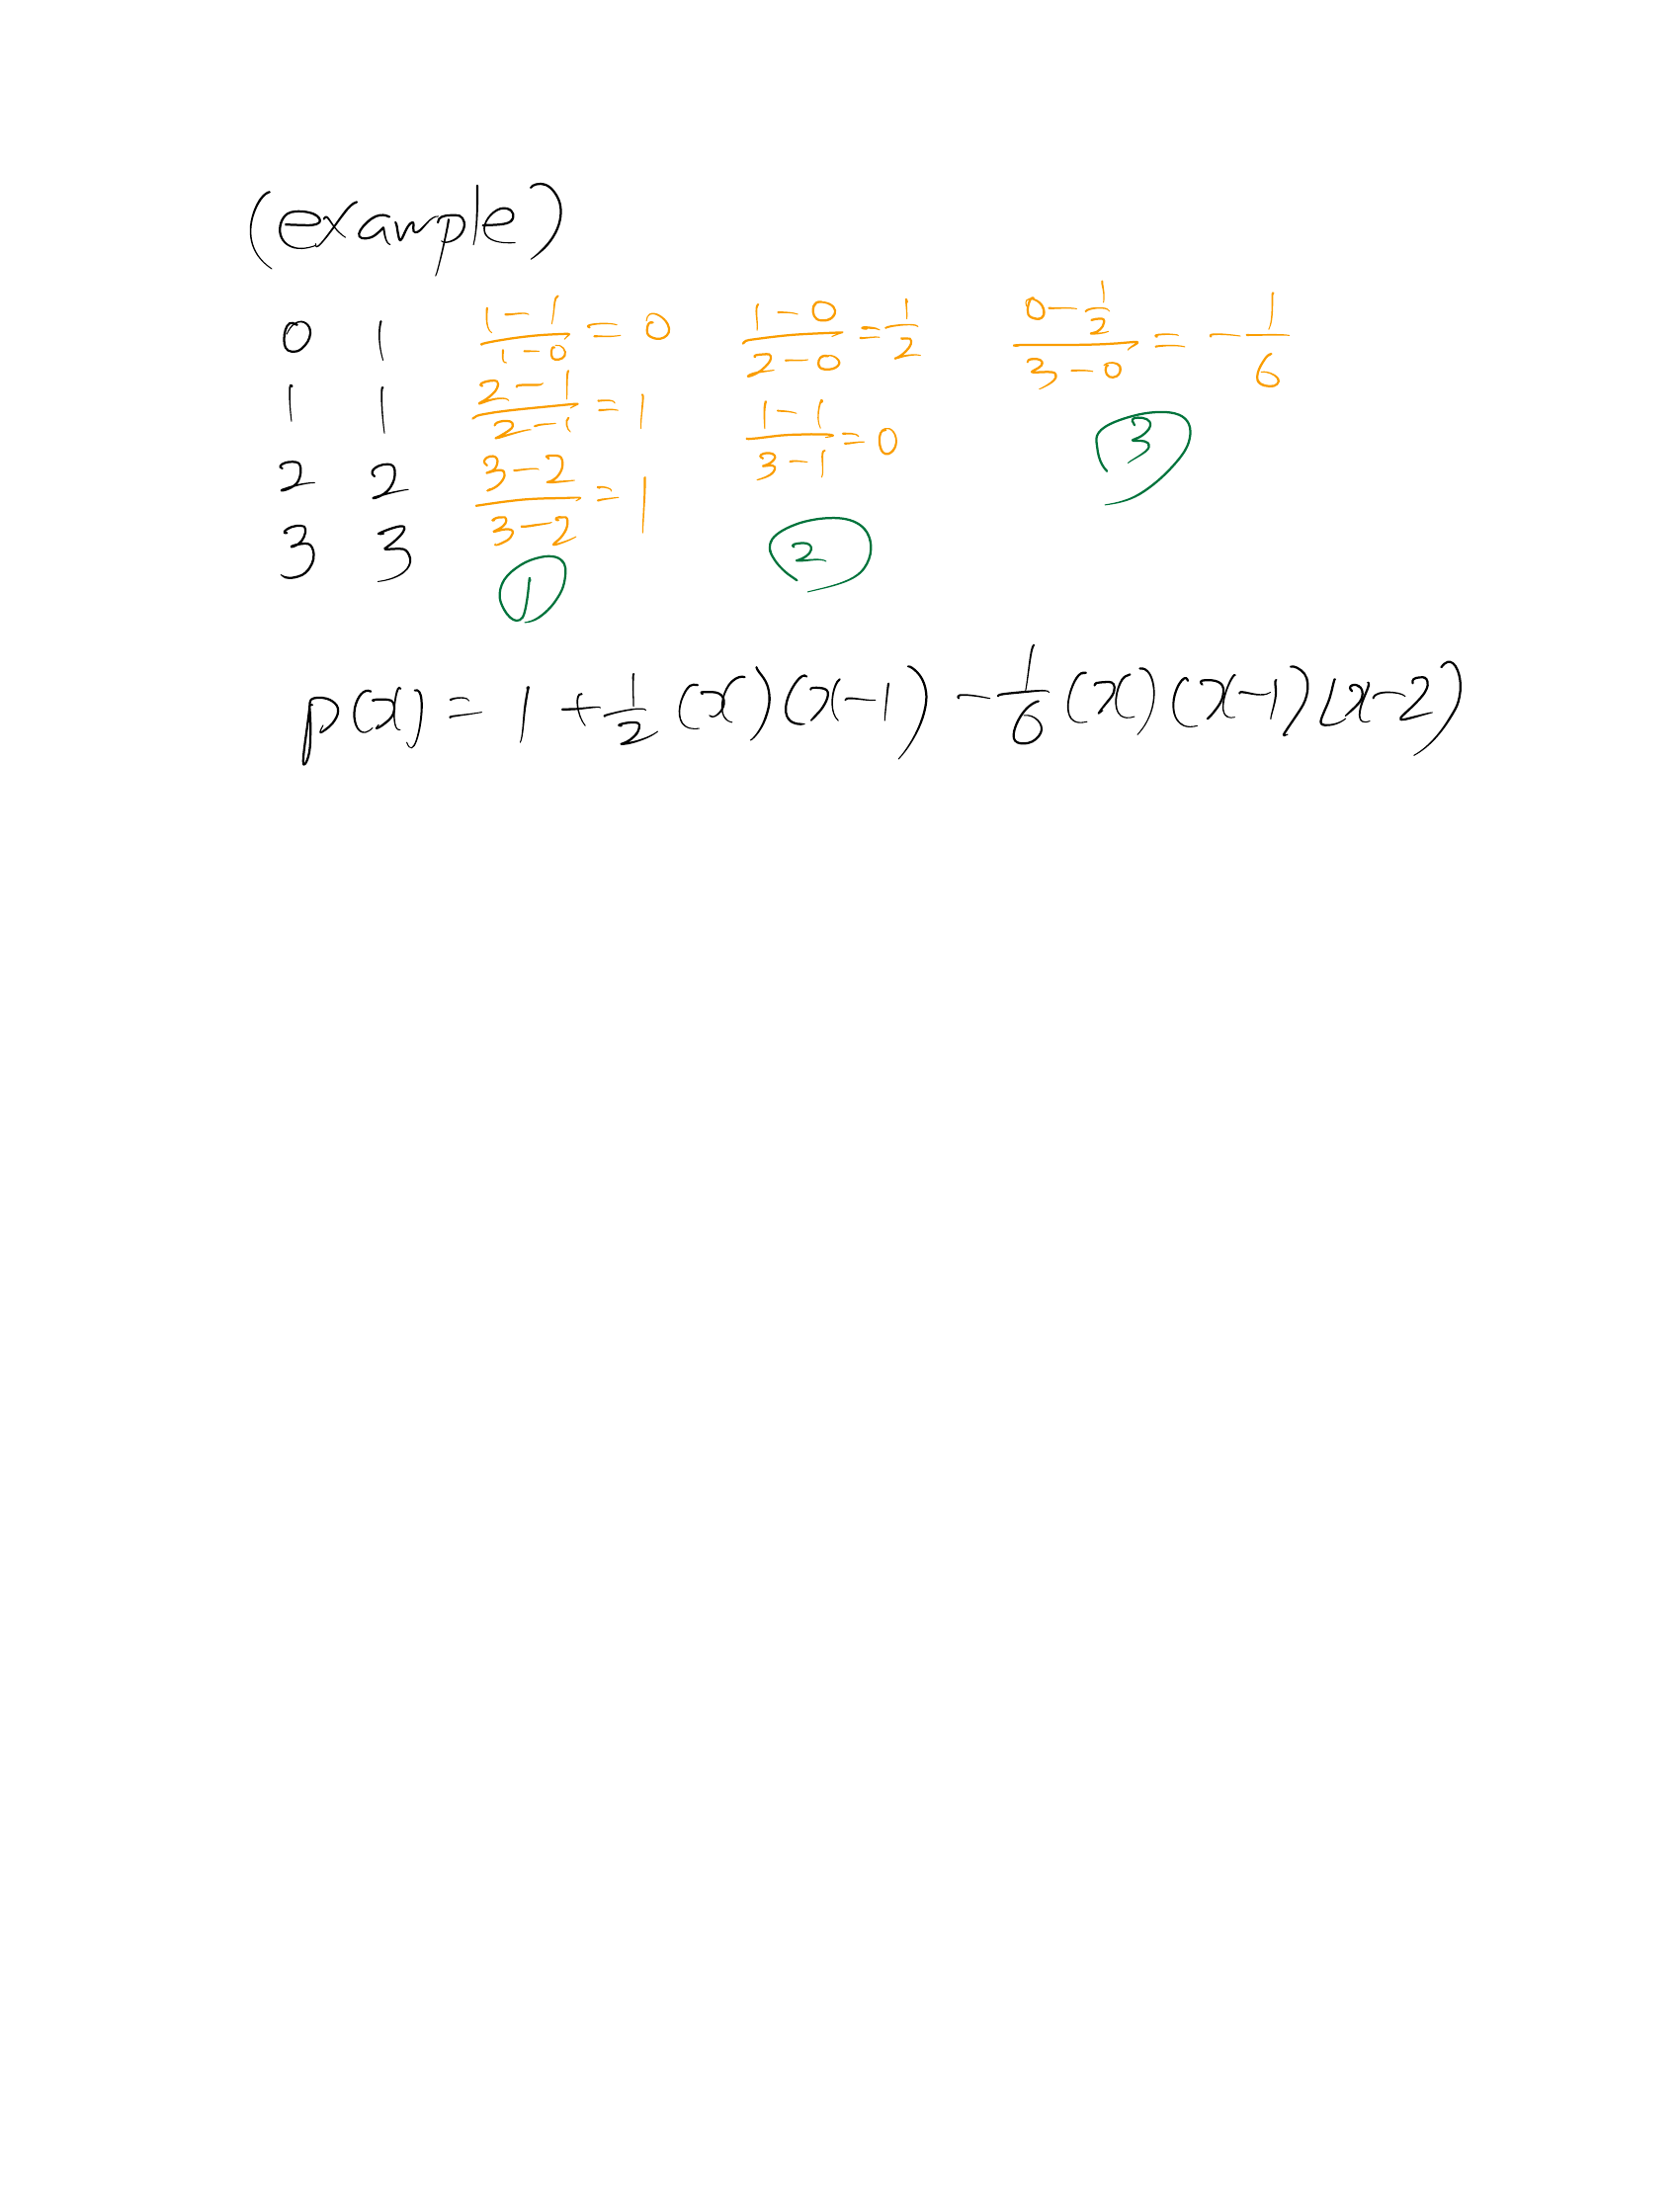 (example)
0 1 (1-1)/(1-0) = 0 (1-0)/(2-0) = 1/2 (0-1/2)/(3-0) = -1/6
1 1 (2-1)/(2-1) = 1 (1-1)/(3-1) = 0 ③
2 2 (3-2)/(3-2) = 1
3 3 ① ②
p(x) = 1 + 1/2 (x)(x-1) - 1/6 (x)(x-1)(x-2)